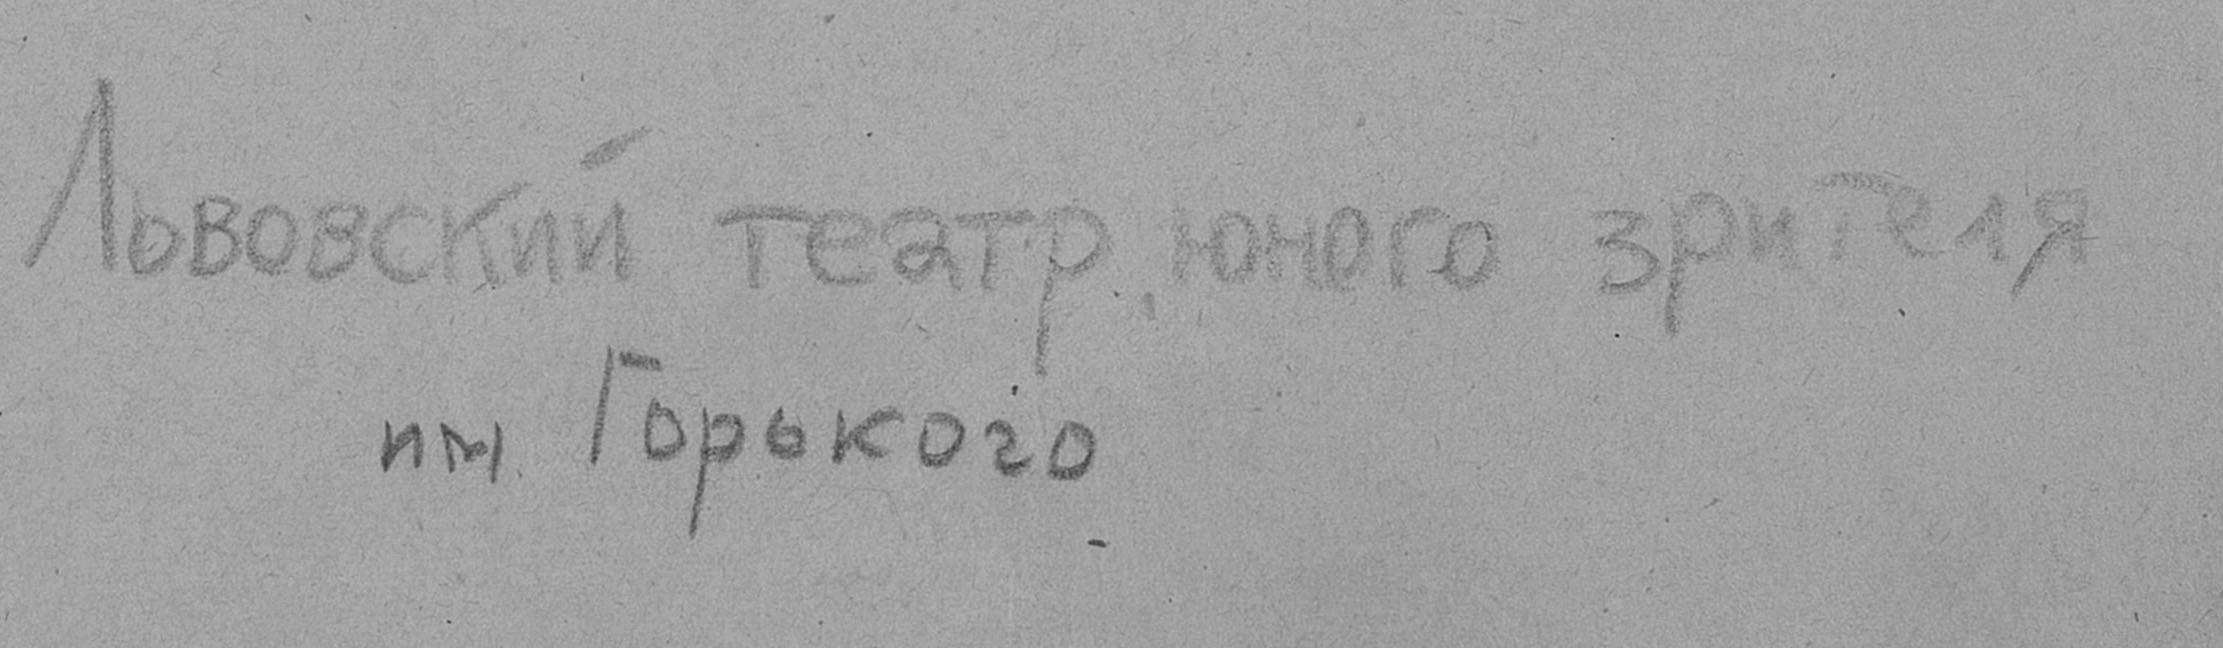 Львовский театр юного зрителя
им. Горького